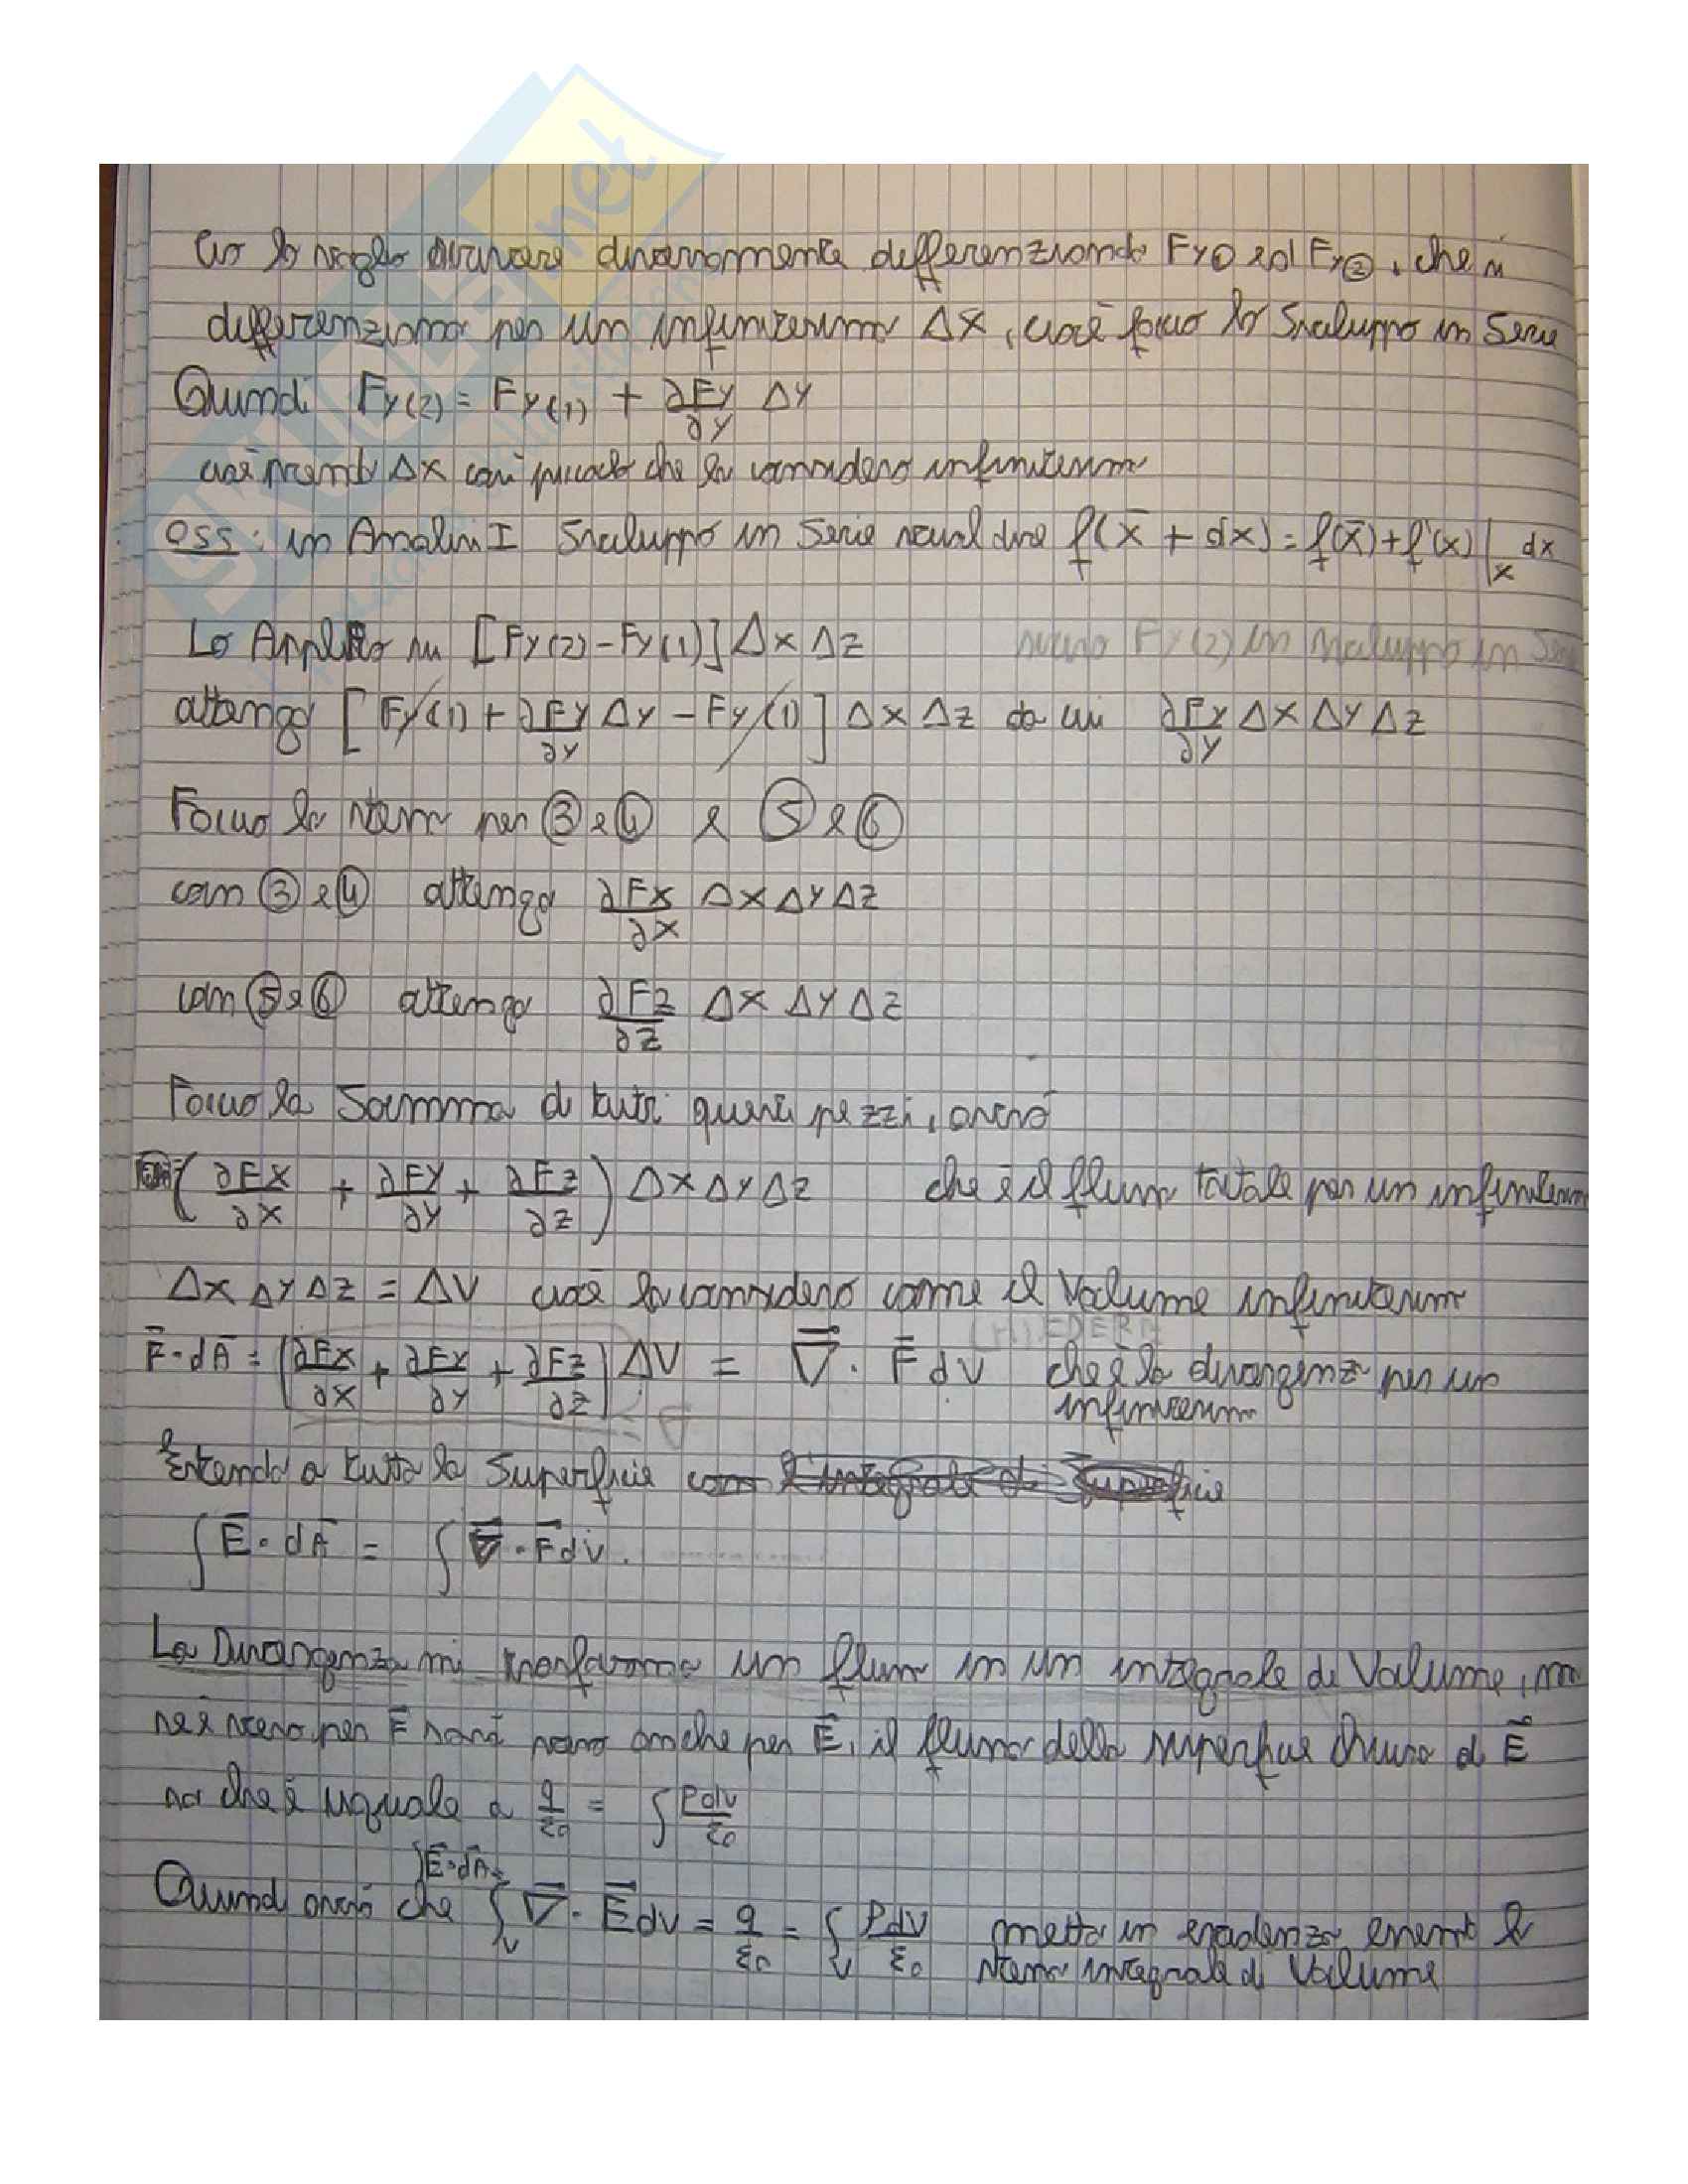 Ciò lo voglio scrivere diversamente differenziando Fy① ed Fy②, che si
differenziano per un infinitesimo Δx, cioè faccio lo Sviluppo in Serie
Quindi Fy(2) = Fy(1) + ∂Fy/∂y Δy
cioè prendo Δx così piccolo che lo considero infinitesimo
OSS: in Analisi I Sviluppo in Serie vuol dire f(x̄ + dx) = f(x̄) + f'(x)|x dx
Lo Applico su [Fy(2) - Fy(1)] Δx Δz
scrivo Fy(2) in sviluppo in Serie
ottengo [Fy(1) + ∂Fy/∂y Δy - Fy(1)] Δx Δz da cui ∂Fy/∂y Δx Δy Δz
Faccio lo stesso per ③ e ④ e ⑤ e ⑥
con ③ e ④ ottengo ∂Fx/∂x Δx Δy Δz
con ⑤ e ⑥ ottengo ∂Fz/∂z Δx Δy Δz
Faccio la Somma di tutti questi pezzi, avrò
(∂Fx/∂x + ∂Fy/∂y + ∂Fz/∂z) Δx Δy Δz che è il flusso totale per un infinitesimo
Δx Δy Δz = ΔV cioè lo considero come il Volume infinitesimo
CHIEDERE
F̄ · dĀ = (∂Fx/∂x + ∂Fy/∂y + ∂Fz/∂z) ΔV = ∇ · F̄ dV che è la divergenza per un
infinitesimo
Estendo a tutta la Superficie con l'integrale di Superficie
∫ Ē · dĀ = ∫ ∇ · F̄ dV.
La Divergenza mi trasforma un flusso in un integrale di Volume, ma
se è vero per F̄ sarà vero anche per Ē, il flusso della superficie chiusa di Ē
so che è uguale a q/ε0 = ∫ ρdv/ε0
∫Ē·dĀ=
Quindi avrò che ∫V ∇ · Ē dV = q/ε0 = ∫V ρdV/ε0 metto in evidenza essendo lo
stesso integrale di Volume